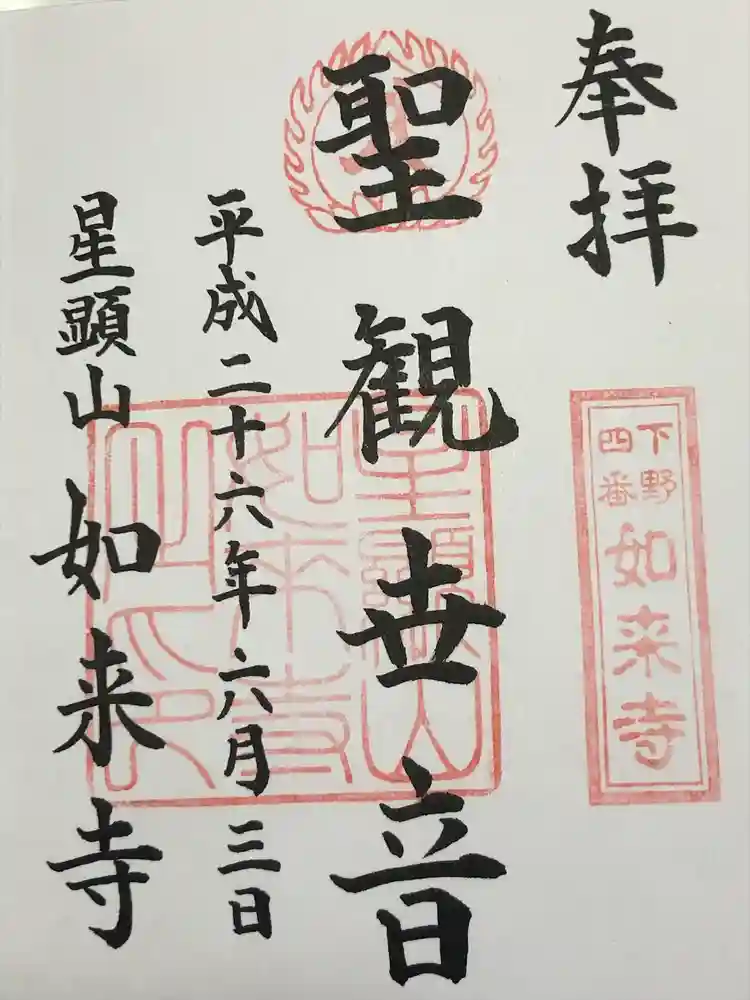 奉拝
下野
四番
如来寺
聖観世音
星顕山
如来寺
平成二十六年六月三日
星顕山 如来寺